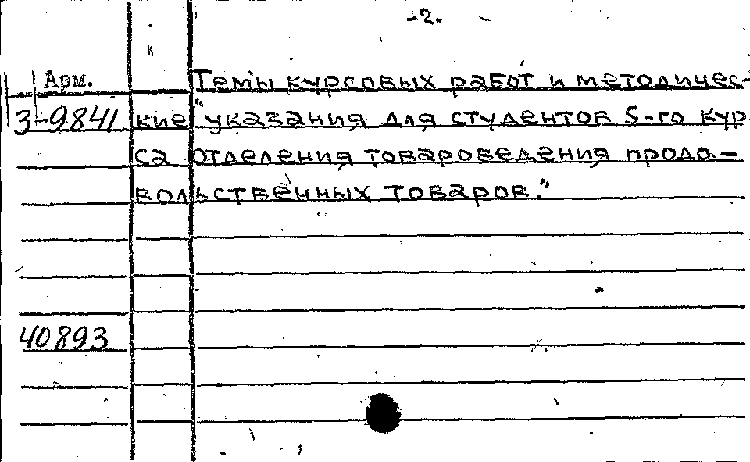 -2.
Арм. Темы курсовых работ и методичес-
3-9841 кие "указания для студентов 5-го кур
са отделения товароведения продо-
вольственных товаров."
40893